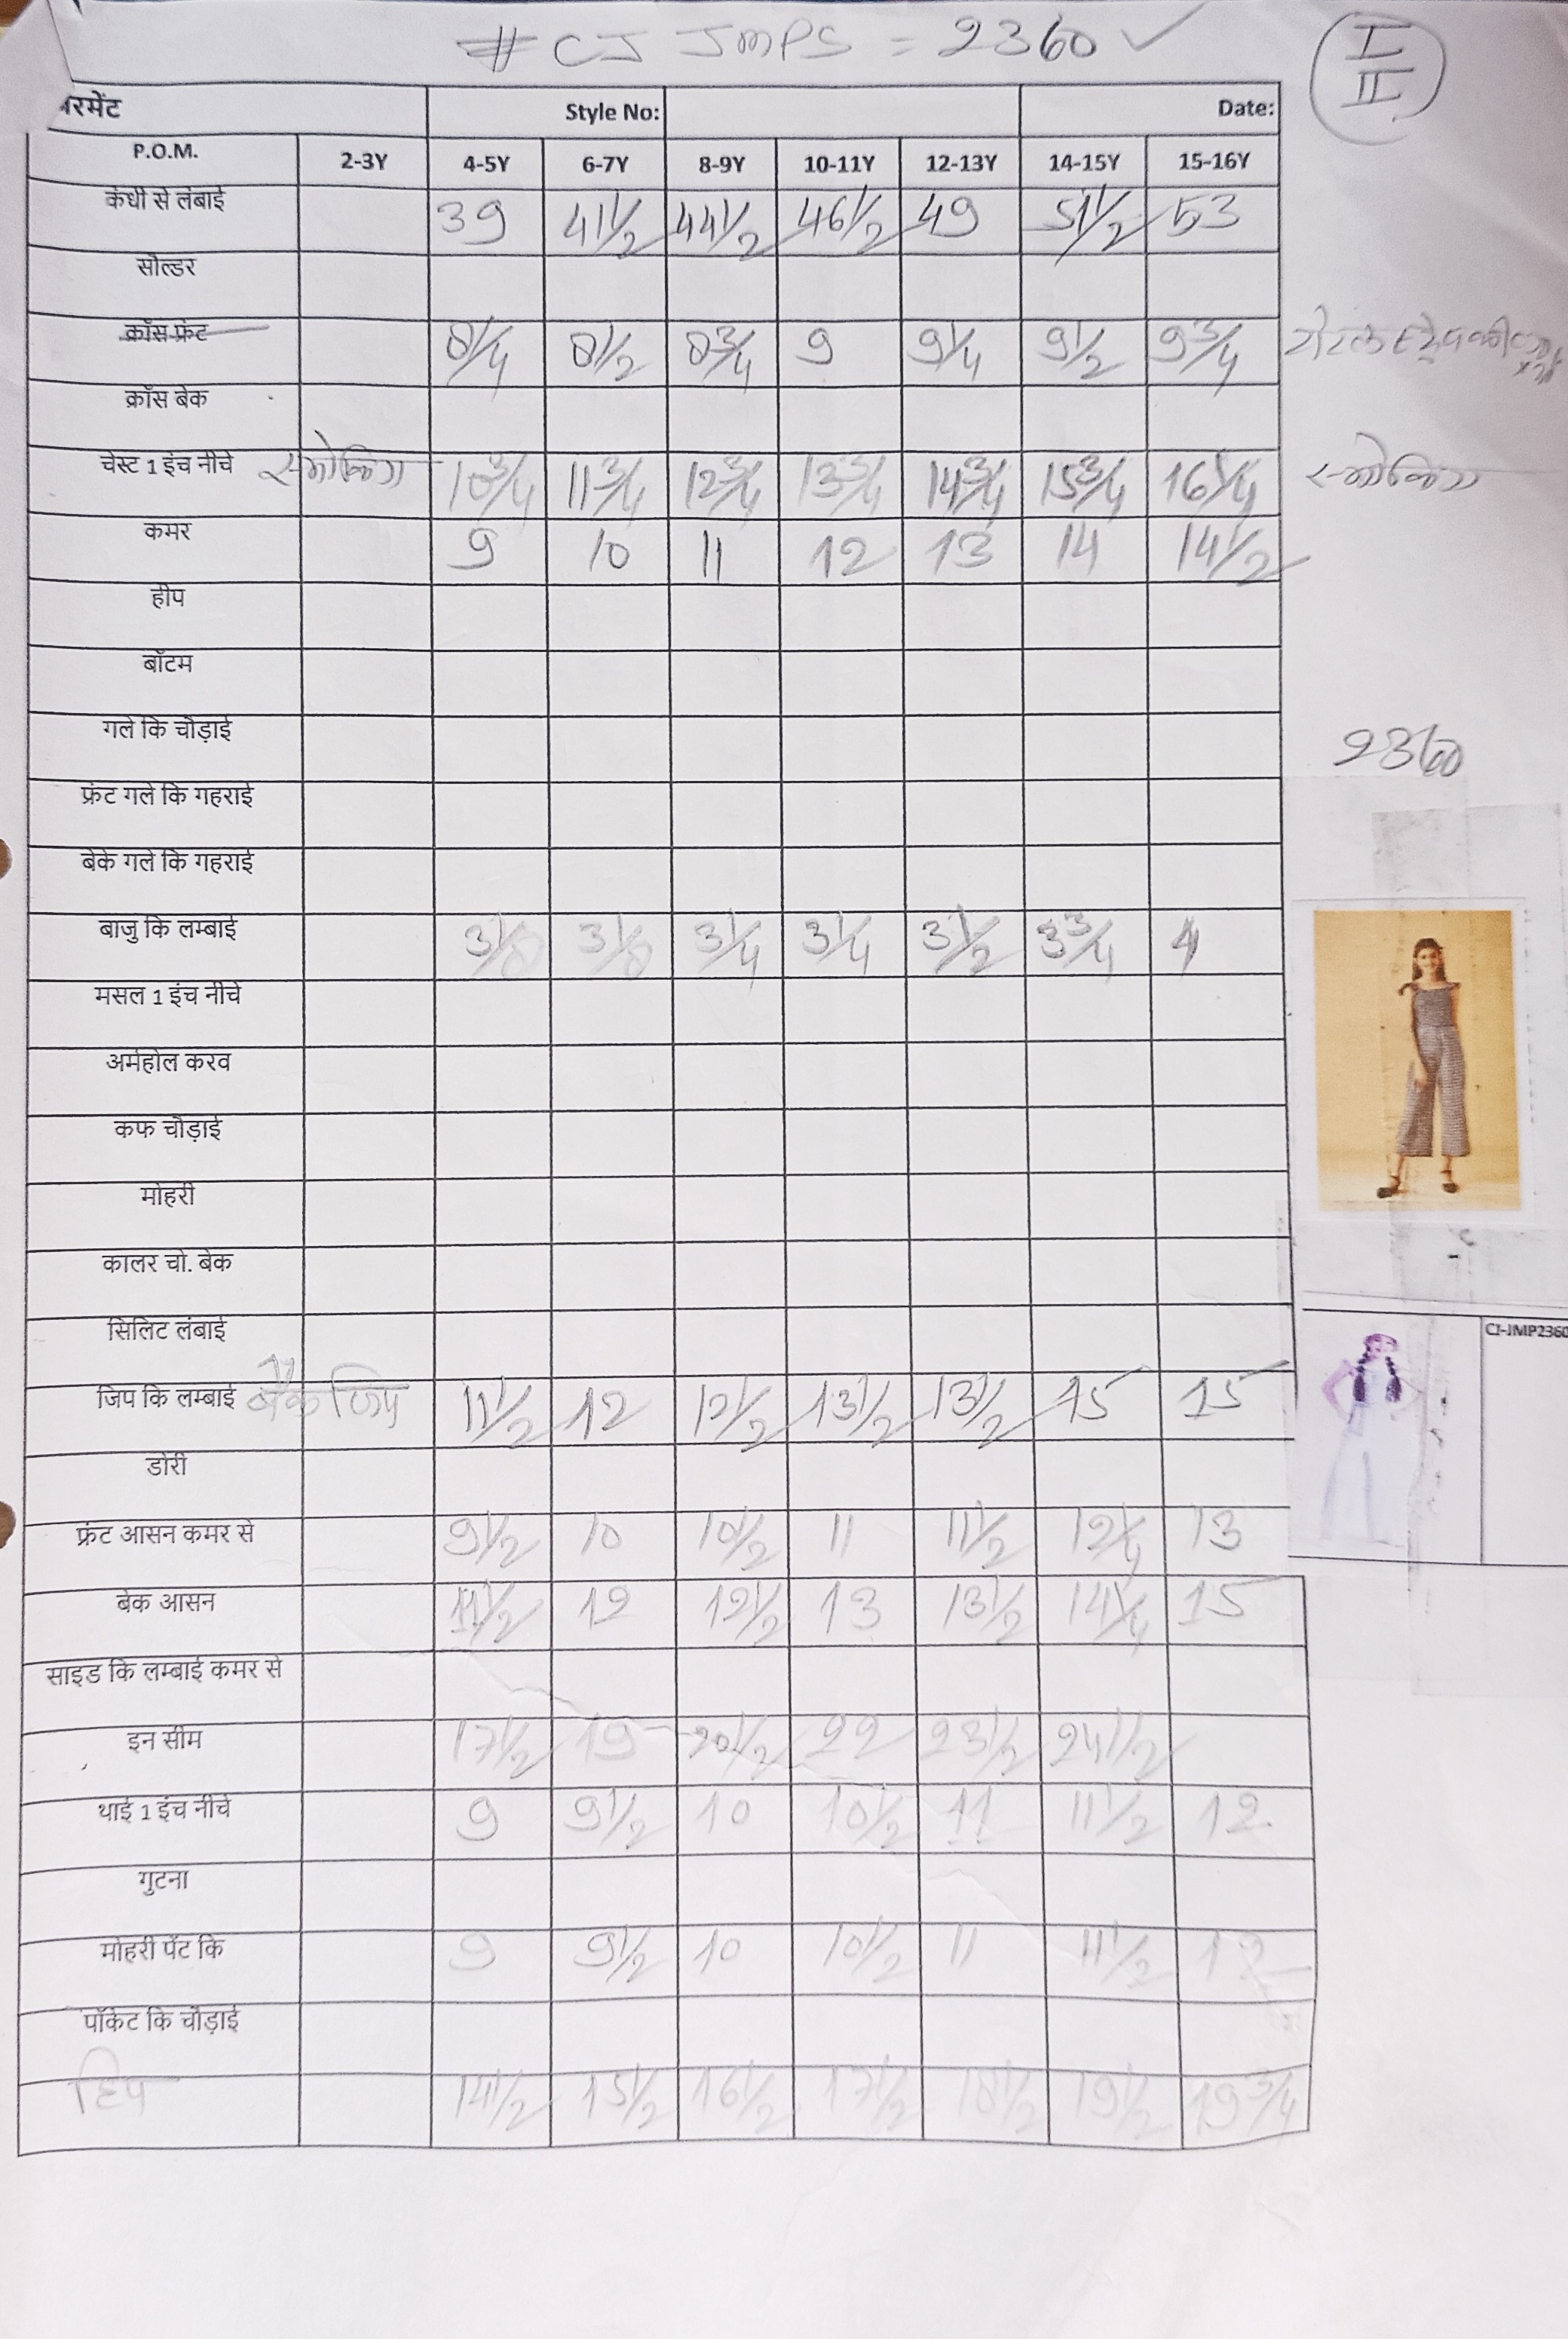 # CJ JMPS = 2360 ✓
I
II
रमेंट Style No: Date:
P.O.M. 2-3Y 4-5Y 6-7Y 8-9Y 10-11Y 12-13Y 14-15Y 15-16Y
कंधी से लंबाई 39 41 1/2 44 1/2 46 1/2 49 51 1/2 53
सोल्डर
क्रॉस फ्रंट 8 1/4 8 1/2 8 3/4 9 9 1/4 9 1/2 9 3/4 टोटल
क्रॉस बेक
चेस्ट 1 इंच नीचे स्मोकिंग 10 3/4 11 3/4 12 3/4 13 3/4 14 3/4 15 3/4 16 1/4 स्मोकिंग
कमर 9 10 11 12 13 14 14 1/2
हीप
बॉटम
गले कि चौड़ाई
2360
फ्रंट गले कि गहराई
बेके गले कि गहराई
बाजु कि लम्बाई 3 1/8 3 1/8 3 1/4 3 1/4 3 1/2 3 3/4 4
मसल 1 इंच नीचे
अर्महोल करव
कफ चौड़ाई
मोहरी
कालर चो. बेक
सिलिट लंबाई
CJ-JMP2360
जिप कि लम्बाई बैक जिप 11 1/2 12 12 1/2 13 1/2 13 1/2 15 15
डोरी
फ्रंट आसन कमर से 9 1/2 10 10 1/2 11 11 1/2 12 1/4 13
बेक आसन 11 1/2 12 12 1/2 13 13 1/2 14 1/4 15
साइड कि लम्बाई कमर से
इन सीम 17 1/2 19 20 1/2 22 23 1/2 24 1/2
थाई 1 इंच नीचे 9 9 1/2 10 10 1/2 11 11 1/2 12
गुटना
मोहरी पेंट कि 9 9 1/2 10 10 1/2 11 11 1/2 12
पॉकेट कि चौड़ाई
हिप 14 1/2 15 1/2 16 1/2 17 1/2 18 1/2 19 1/2 19 3/4